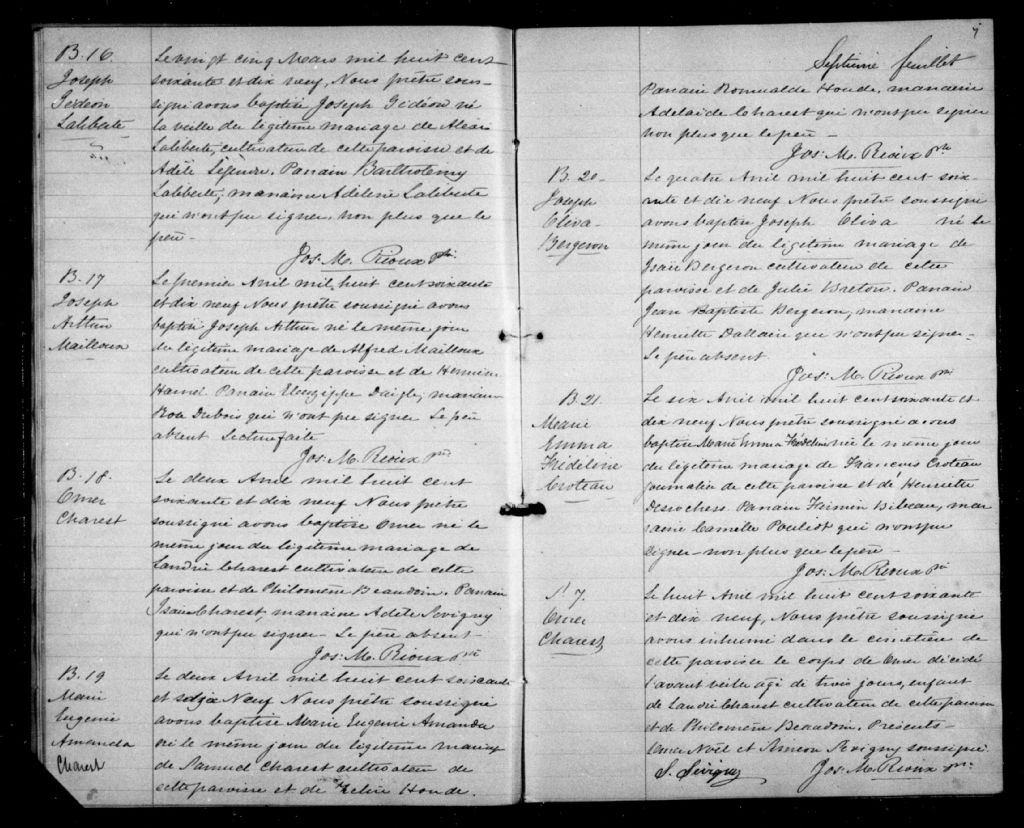 B. 16.
Joseph
Gédéon
Laliberté
Le vingt cinq Mars mil huit cent
soixante et dix neuf, Nous prêtre sous-
signé avons baptisé Joseph Gédéon né
la veille du légitime mariage de Alexis
Laliberté, cultivateur de cette paroisse et de
Adèle Parrain Barthelemy
Laliberté, marraine Adeline Laliberté
qui n'ont pu signer non plus que le
père -
Jos. M. Rioux ptre
B. 17
Joseph
Arthur
Mailloux
Le premier Avril mil huit cent soixante
et dix neuf Nous prêtre soussigné avons
baptisé Joseph Arthur né le même jour
du légitime mariage de Alfred Mailloux
cultivateur de cette paroisse et de
Hamel Parrain Daigle, marraine
Rose Dubois qui n'ont pu signer Le père
absent Lecture faite
Jos. M. Rioux ptre
B. 18.
Omer
Charest
Le deux Avril mil huit cent
soixante et dix neuf Nous prêtre
soussigné avons baptisé Omer né le
même jour du légitime mariage de
Landri Charest cultivateur de cette
paroisse et de Philomène Beaudoin. Parrain
Isaïe Charest, marraine Adèle Sévigny
qui n'ont pu signer - Le père absent -
Jos. M. Rioux ptre
B. 19
Marie
Eugenie
Amanda
Charest
Le deux Avril mil huit cent soixante
et dix Neuf Nous prêtre soussigné
avons baptisé Marie Eugenie Amanda
née le même jour du légitime mariage
de Samuel Charest cultivateur de
cette paroisse et de Zélie Houde.
7
Septième feuillet
Parrain Romualde Houde, marraine
Adelaïde Charest qui n'ont pu signer
non plus que le père -
Jos. M. Rioux ptre
B. 20 -
Joseph
Eliva -
Bergeron
Le quatre Avril mil huit cent soix-
ante et dix neuf Nous prêtre soussigné
avons baptisé Joseph Eliva né le
même jour du légitime mariage de
Isaïe Bergeron cultivateur de cette
paroisse et de Julie Breton. Parrain
Jean Baptiste Bergeron, marraine
Henriette Dallaire qui n'ont pu signer -
Le père absent
Jos. M. Rioux ptre
B. 21.
Marie
Emma
Fridéline
Croteau
Le six Avril mil huit cent soixante et
dix neuf Nous prêtre soussigné avons
baptisé Marie Emma Fridéline née le même jour
du légitime mariage de François Croteau
journalier de cette paroisse et de Henriette
Desrochers. Parrain Firmin Bibeau, mar
raine Camille Pouliot qui n'ont pu
signer - non plus que le père -
Jos. M. Rioux ptre
S. 7.
Omer
Charest
Le huit Avril mil huit cent soixante
et dix neuf, Nous prêtre soussigné
avons inhumé dans le cimetière de
cette paroisse le corps de Omer décédé
l'avant veille agé de trois jours, enfant
de Landri Charest cultivateur de cette paroisse
et de Philomène Beaudoin. Présents -
Omer Noël et Simeon Sévigny soussigné.
S. Sévigny Jos. M. Rioux ptre